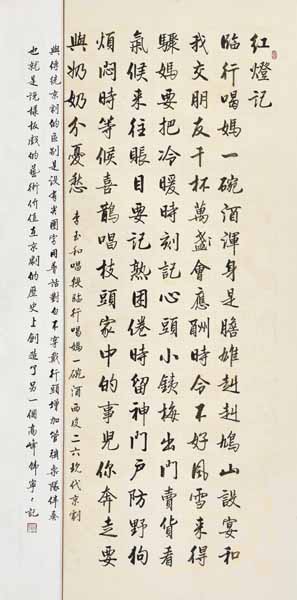 紅燈記
臨行喝媽一碗酒渾身是膽雄赳赳鳩山設宴和
我交朋友千杯萬盞會應酬時令不好風雪來得
驟媽要把冷暖時刻記心頭小銕梅出門賣貨看
氣候來往賬目要記熟困倦時留神門戶防野狗
煩悶時等候喜鵲唱枝頭家中的事兒你奔走要
與奶奶分憂愁 李玉和唱段臨行喝媽一碗酒西皮二六現代京劇
與傳統京劇的區別是沒有尖團字用普话對白不穿戴行頭增加管弦樂隊伴奏
也就是說樣板戲的藝術价值在京劇的歷史上創造了另一個高峰 寧記